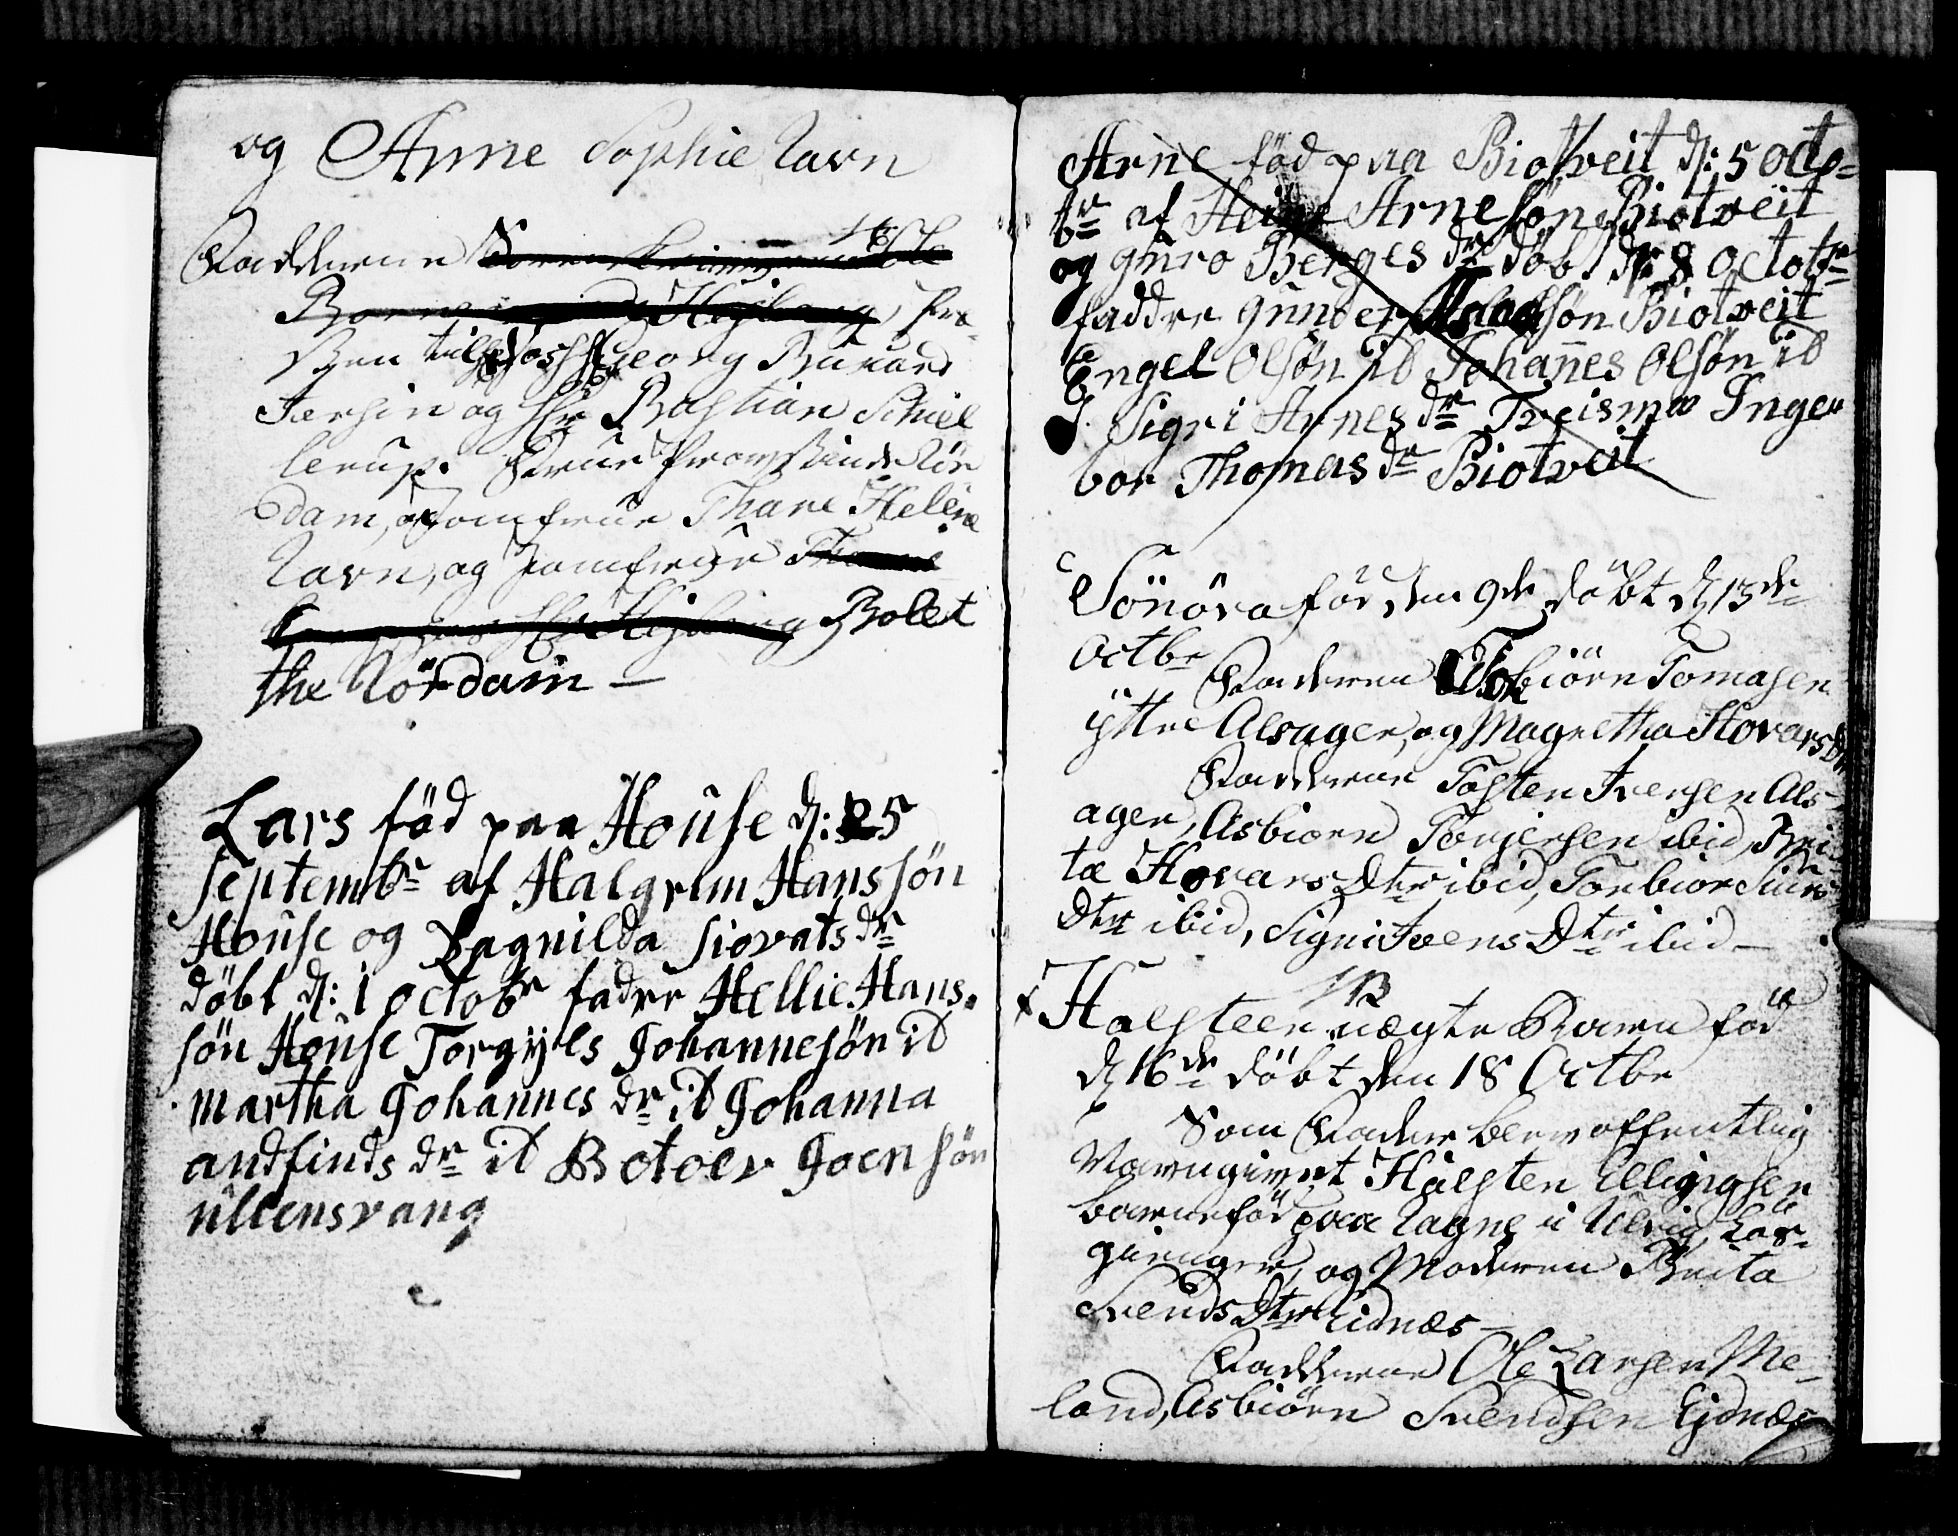 og Anne Sophie Ravn
Fadderne
Borne Hejberg
Georg Burard
Jersin og Hr Bastian Schiel
lerup.
dam, og Jomfrue Thare Helene
Ravn, og Jomfrue
Bolet
the Rördam —
Lars föd paa House d: 25
septembr af Halgrim Hanssön
House og Ragnilda Siovats dr
döbt d: 1 octobr fadre Hellie Hans-
sön House Torgyls Johannesön id
martha Johannes dr id Johanna
andfinds dr id Botolv Joen sön
ullensvang
Arne föd paa Biotveit d: 5 octo-
br af Arnesön Biotveit
og guro Berges dr döbt d: 8 octobr
faddre gunder Aslachsön Biotveit
Engel Olsön id Johannes Olsön id
Sigri Arnes dr Treismo Inge
bor Thomas dr Biotveit
Sönöva föd den 9de döbt d 13de
Octbr
Faderen Tobiörn Tomasen
ÿttre Alsager, og Magretha Hovars Dtr
Fadderne Tosten Iversen Als-
ager, Asbiörn Torjersen ibid, Bri-
ta Hovars Dtr ibid, Torbior Siurs
Dtr ibid, Signi Ivens Dtr ibid —
NB
Halsteen uægte Barn föd
d 16de döbt den 18 Octbr
Som Fader blev offentlig
Halsten Ellingsen
barneföd paa Ragne i Ulvig,
og Moderen Brita
Svends Dtr Eidnæs —
Fadderne Ole Larsen Me-
land, Asbiörn Svendsen Ejdnæs